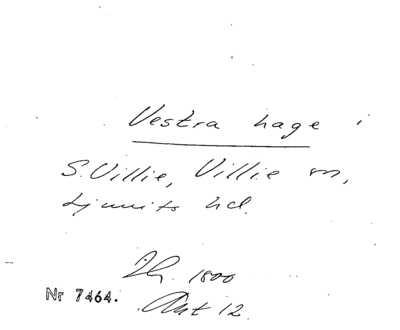 Vestra hage i
S. Villie, Villie sn,
Ljunits hd.
Lh. 1800
Nr 7464. Akt 12.